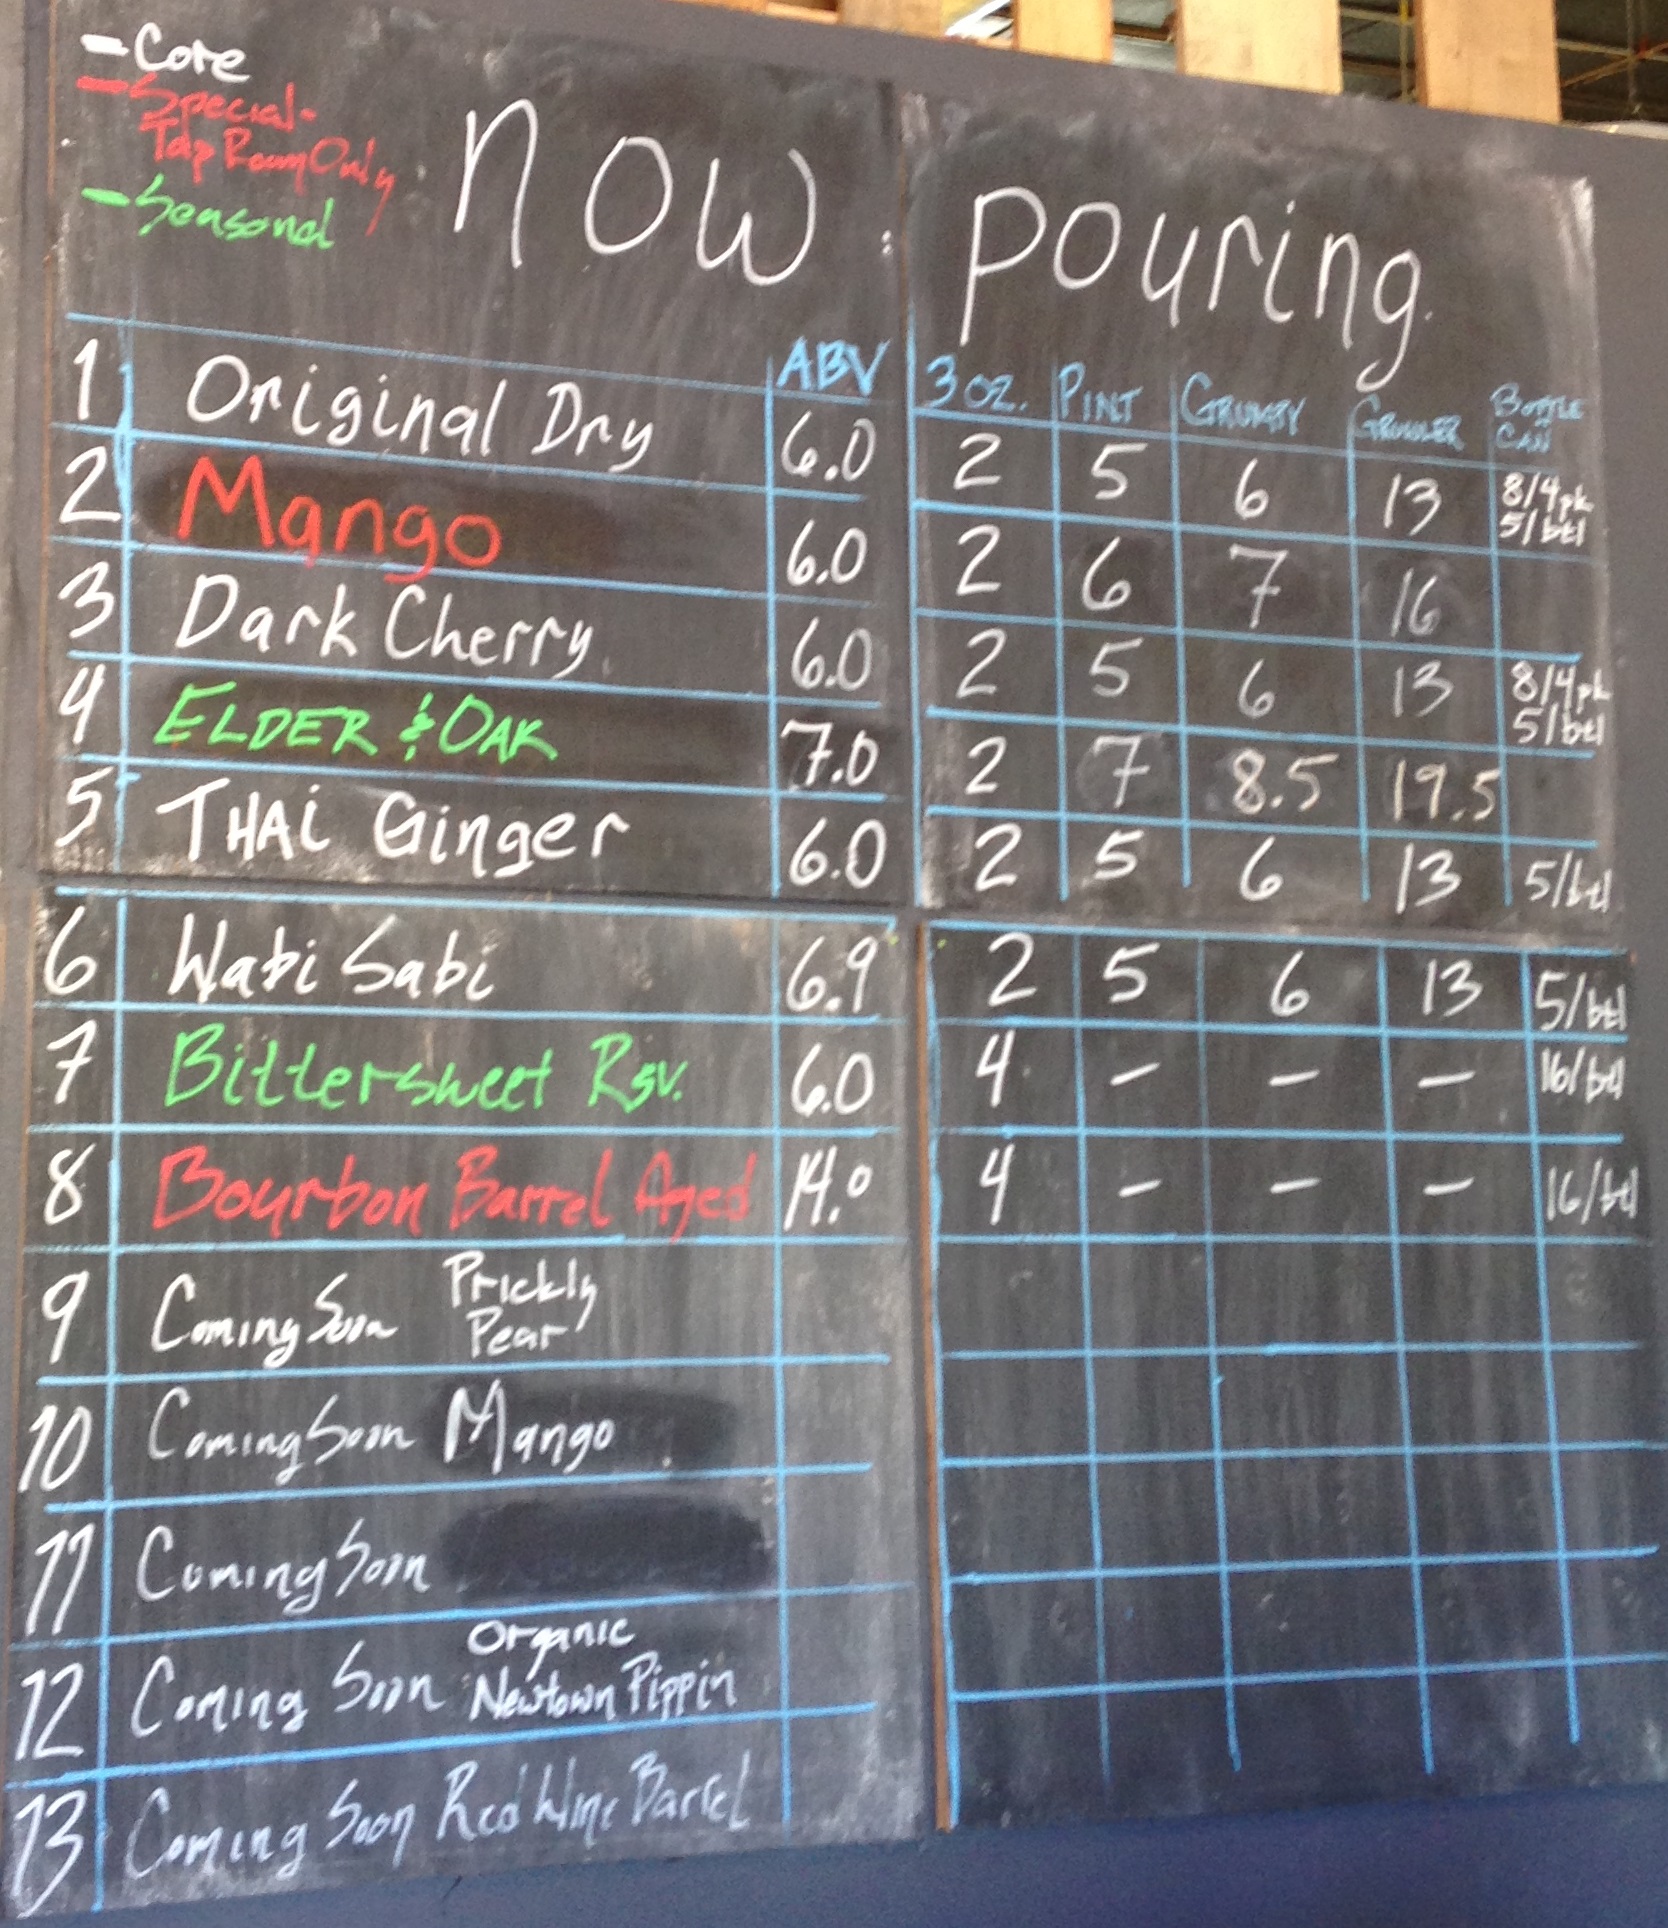 - Core
- Special-
Tap Room Only
- Seasonal
now pouring
ABV 3 oz. PINT GRUMPY GROWLER BOTTLE CAN
1 Original Dry 6.0 2 5 6 13 8/4pk 5/btl
2 Mango 6.0 2 6 7 16
3 Dark Cherry 6.0 2 5 6 13 8/4pk 5/btl
4 ELDER & OAK 7.0 2 7 8.5 19.5
5 THAi Ginger 6.0 2 5 6 13 5/btl
6 Wabi Sabi 6.9 2 5 6 13 5/btl
7 Bittersweet Rsv. 6.0 4 - - - 16/btl
8 Bourbon Barrel Aged 14.0 4 - - - 16/btl
9 Coming Soon Prickly Pear
10 Coming Soon Mango
11 Coming Soon
12 Coming Soon Organic Newtown Pippin
13 Coming Soon Red Wine Barrel